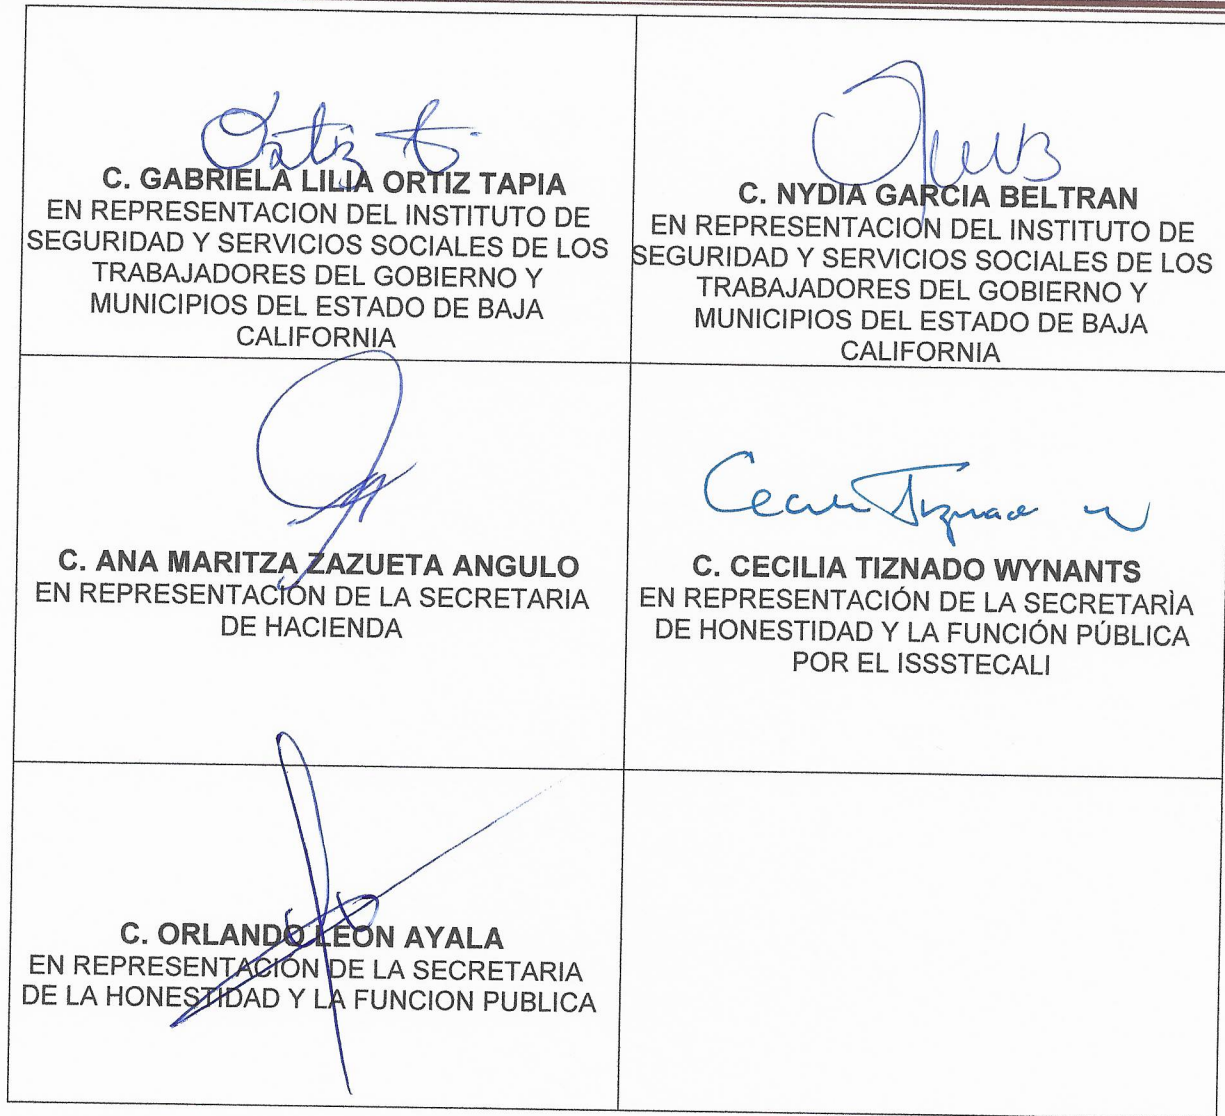 Ortiz
C. GABRIELA LILIA ORTIZ TAPIA
EN REPRESENTACION DEL INSTITUTO DE
SEGURIDAD Y SERVICIOS SOCIALES DE LOS
TRABAJADORES DEL GOBIERNO Y
MUNICIPIOS DEL ESTADO DE BAJA
CALIFORNIA
C. NYDIA GARCIA BELTRAN
EN REPRESENTACION DEL INSTITUTO DE
SEGURIDAD Y SERVICIOS SOCIALES DE LOS
TRABAJADORES DEL GOBIERNO Y
MUNICIPIOS DEL ESTADO DE BAJA
CALIFORNIA
C. ANA MARITZA ZAZUETA ANGULO
EN REPRESENTACIÓN DE LA SECRETARIA
DE HACIENDA
C. CECILIA TIZNADO WYNANTS
EN REPRESENTACIÓN DE LA SECRETARÌA
DE HONESTIDAD Y LA FUNCIÓN PÚBLICA
POR EL ISSSTECALI
C. ORLANDO LEON AYALA
EN REPRESENTACIÓN DE LA SECRETARIA
DE LA HONESTIDAD Y LA FUNCION PUBLICA